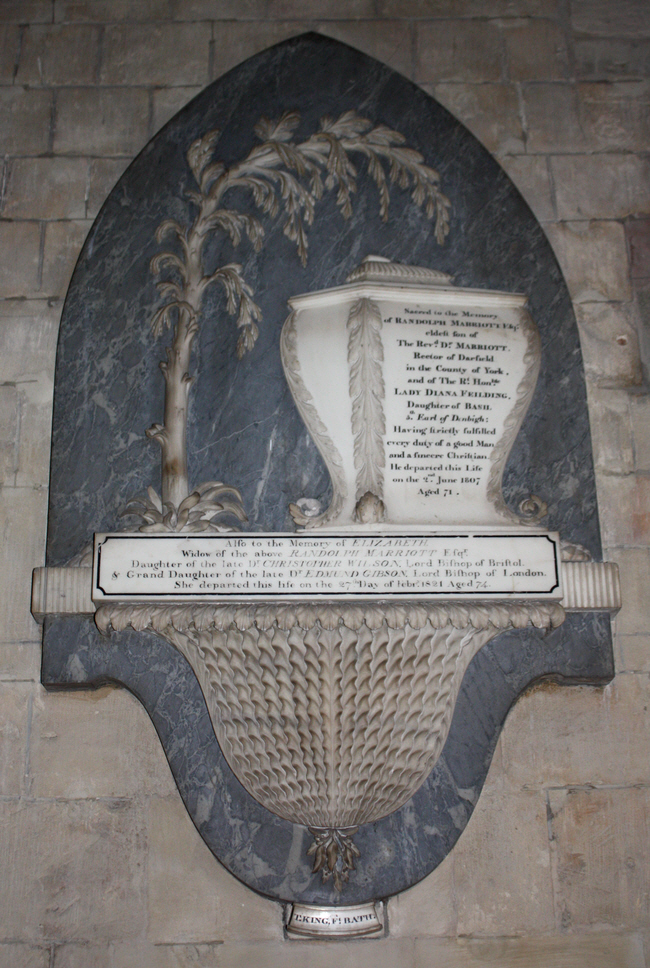 Sacred to the Memory
of RANDOLPH MARRIOTT Esqr.
eldeſt ſon of
The Revd. Dr. MARRIOTT,
Rector of Darfield
in the County of York,
and of The Rt. Honble.
LADY DIANA FEILDING,
Daughter of BASIL
5th. Earl of Denbigh:
Having ſtrictly fulfilled
every duty of a good Man
and a ſincere Chriſtian.
He departed this Life
on the 2nd. June 1807
Aged 71.
Alſo to the Memory of ELIZABETH
Widow of the above RANDOLPH MARRIOTT Eſqr.
Daughter of the late Dr. CHRISTOPHER WILSON, Lord Biſhop of Briſtol.
& Grand Daughter of the late Dr. EDMUND GIBSON, Lord Biſhop of London.
She departed this life on the 27th Day of Febry. 1821 Aged 74.
T. KING, Ft. BATH.